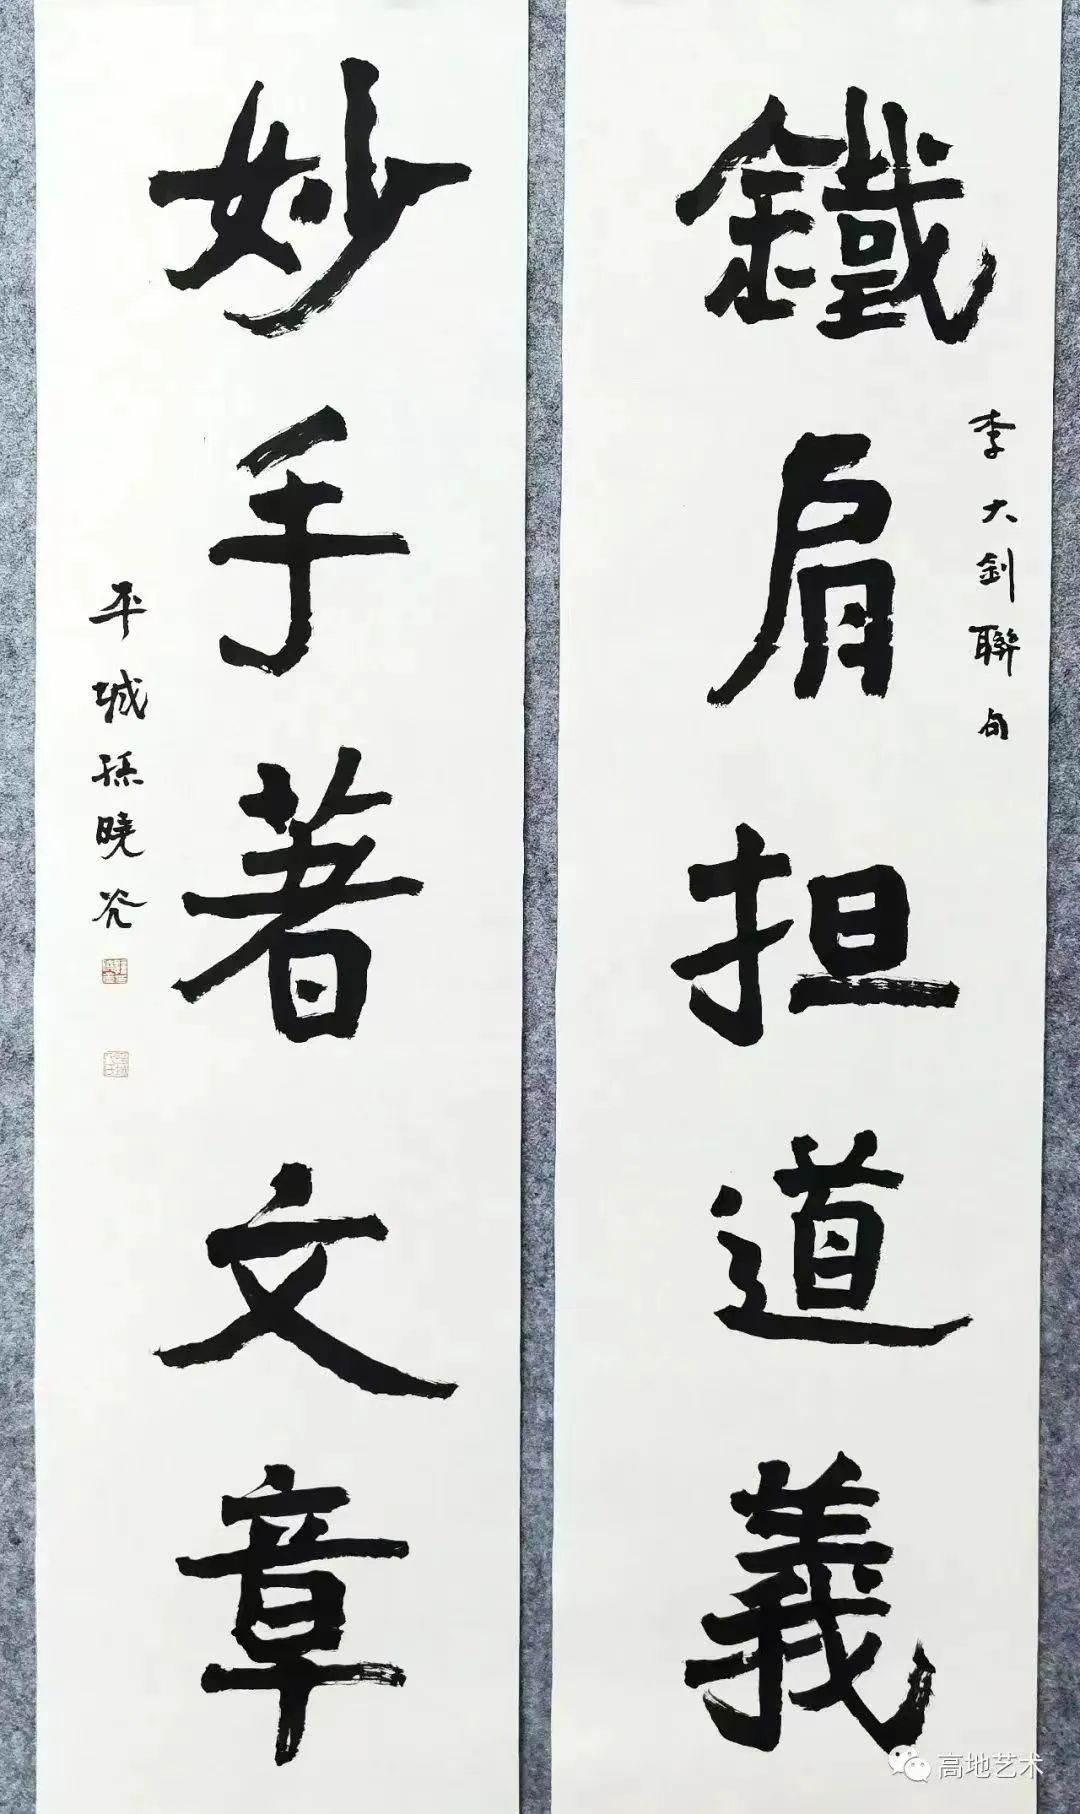 鐵肩担道義
李大釗聯句
妙手著文章
平城孫曉谷
高地艺术